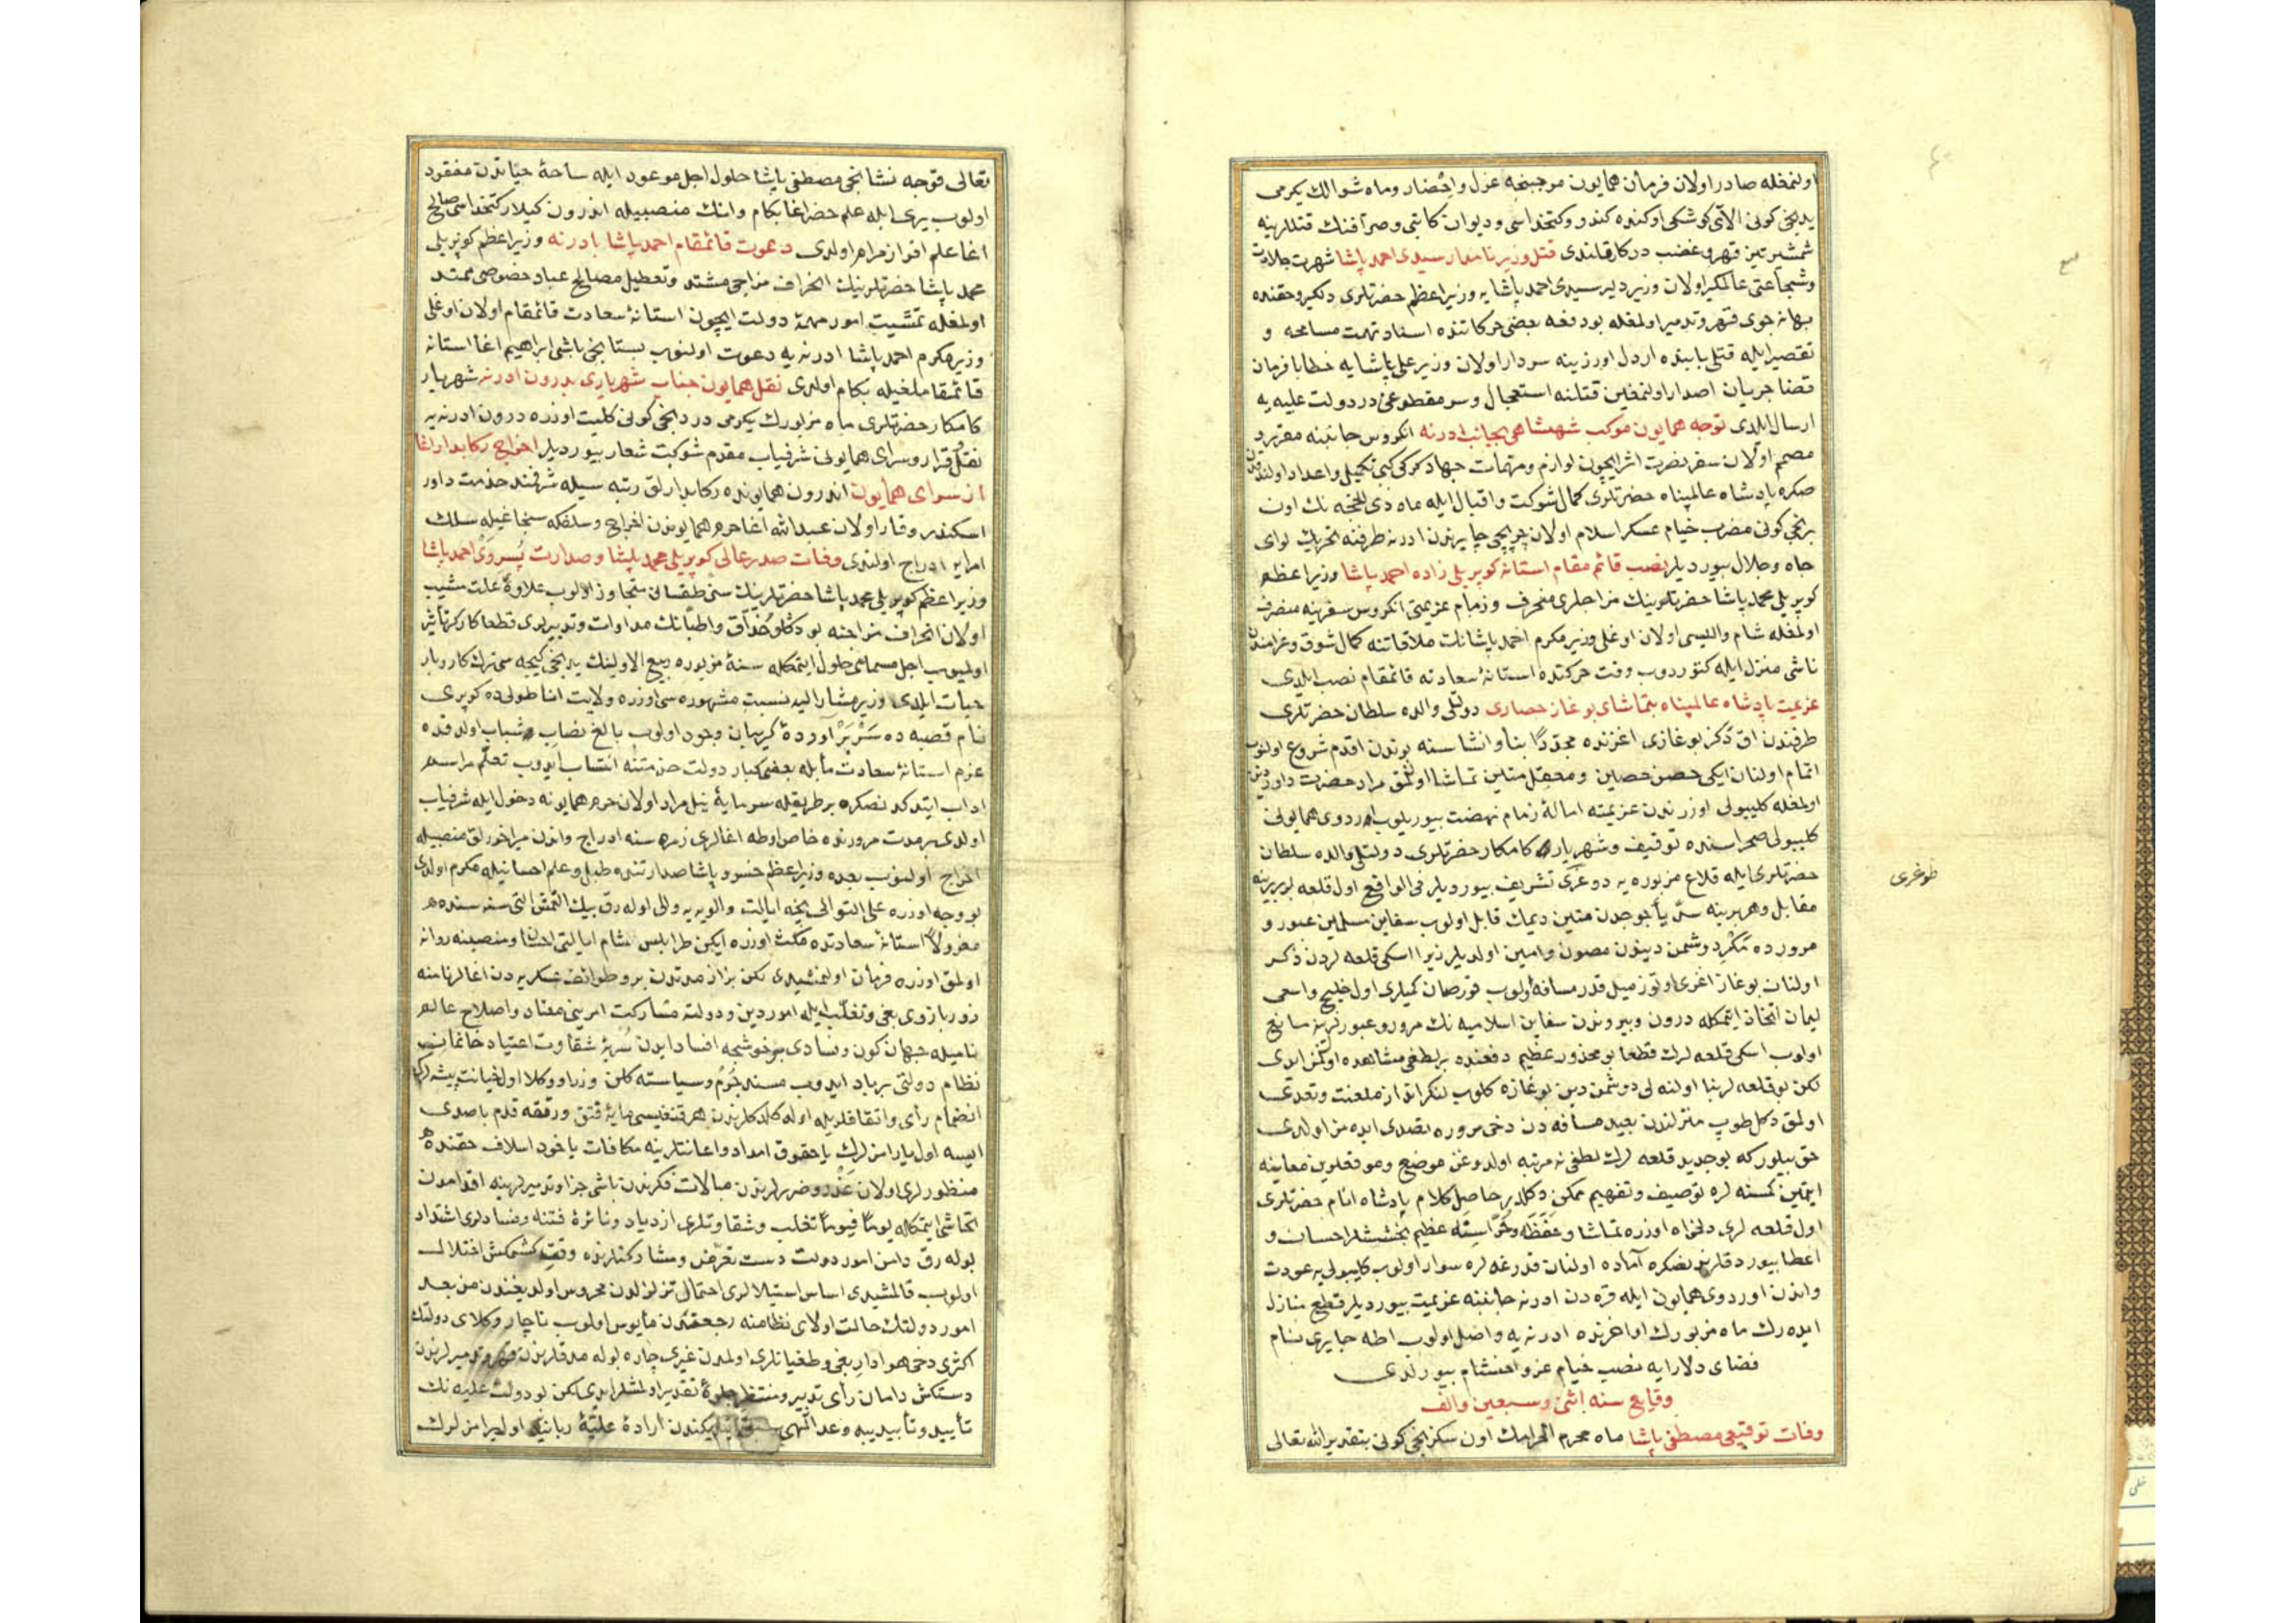 اولنمغله صادر اولان فرمان همايون موجبنجه عزل واحضار وماه شوالك يكرمى
يدنجى كونى الاى كوشكى اوكنده كندو وكتخداسى وديوان كاتبى وصرافنك قتللرينه
شمشير تيز قهر و غضب دركار قلندى قتل وزير نامدار سيدى احمد پاشا شهرت جلادت
وشجاعتى عالمكير اولان وزير دلير سيدى احمد پاشايه وزير اعظم حضرتلرى دلكير وحقنده
بهانه جوى قهر وتدمير اولمغله بودفعه بعضى حركاتنده اسناد تهمت مسامحه و
تقصير ايله قتلى بابنده اردل اوزرينه سردار اولان وزير على پاشايه خطابا فرمان
قضا جريان اصدار اولنمغين قتلنه استعجال وسر مقطوعنى در دولت عليه يه
ارسال ايلدى توجه همايون موكب شهنشاهى بجانب ادرنه انكروس جانبنه مقرر و
مصمم اولان سفر نصرت اثر ايچون لوازم ومهمات جهاد كركى كبى تكميل واعداد اولندقدن
صكره پادشاه عالمپناه حضرتلرى كمال شوكت واقبال ايله ماه ذى الحجه نك اون
برنجى كونى مضرب خيام عسكر اسلام اولان چرپيجى چايرندن ادرنه طرفنه تحريك لواى
جاه وجلال بيورديلر نصب قائم مقام استانه كوپريلى زاده احمد پاشا وزير اعظم
كوپريلى محمد پاشا حضرتلرينك مزاجلرى منحرف وزمام عزيمتى انكروس سفرينه منصرف
اولمغله شام واليسى اولان اوغلى وزير مكرم احمد پاشانك ملاقاتنه كمال شوق وغرامندن
ناشى منزل ايله كتوردوب وقت حركتده استانۀ سعادته قائمقام نصب ايلدى
عزيمت پادشاه عالمپناه بتماشاى بوغاز حصارى دولتلى والده سلطان حضرتلرى
طرفندن اق دكز بوغازى اغزنده مجددًا بنا وانشاسنه بوندن اقدم شروع اولنوب
اتمام اولنان ايكى حصن حصين ومعقل متين تماشا اولنمق مراد حضرت داور دين
اولمغله كليبولى اوزرندن عزيمته امالۀ زمام نهضت بيوريلوب اردوى همايونى
كليبولى صحراسنده توقيف وشهريار كامكار حضرتلرى دولتلى والده سلطان
حضرتلرى ايله قلاع مزبوره يه دوغرى تشريف بيورديلر فى الواقع اول قلعه لر بربرينه
مقابل وهر برينه سد يأجوجدن متين ديمك قابل اولوب سفاين مسلمين عبور و
مرورده مكر دشمن ديندن مصون وامين اولديلر زيرا اسكى قلعه لردن ذكر
اولنان بوغاز اغزى اوتوز ميل قدر مسافه اولوب قورصان كميلرى اول خليج واسعى
ليمان اتخاذ ايتمكله درون وبيروندن سفاين اسلاميه نك مرور وعبورلرينه مانع
اولوب اسكى قلعه لرك قطعا بو محذور عظيم دفعنده بر لطفى مشاهده اولنمز ايدى
لكن بو قلعه لر بنا اولنه لى دوشمن دين بوغازه كلوب لنكر انداز ملعنت وتعدى
اولمق دكل طوپ منزلندن بعيد مسافه دن دخى مروره تصدى ايده مز اولدى
حق بيلور كه بو جديد قلعه لرك لطفى نه مرتبه اولدوغن موضع وموقعلرين معاينه
ايتمين كمسنه لره توصيف وتفهيم ممكن دكلدر حاصل كلام پادشاه انام حضرتلرى
اول قلعه لرى دلخواه اوزره تماشا وحفظه وحراسنه عظيم بخششلر احسان و
اعطا بيوردقلرندنصكره آماده اولنان قدرغه لره سوار اولوب كليبولى يه عودت
واندن اوردوى همايون ايله قره دن ادرنه جانبنه عزيمت بيورديلر قطع منازل
ايده رك ماه مزبورك اواخرنده ادرنه يه واصل اولوب اطه چايرى نام
فضاى دلارايه نصب خيام عز واحتشام بيورلدى
وقايع سنه اثنى وسبعين والف
وفات توقيعى مصطفى پاشا ماه محرم الحرامك اون سكزنجى كونى بتقدير الله تعالى
طوغرى
تعالى قوجه نشانجى مصطفى پاشا حلول اجل موعود ايله ساحۀ حياتدن مفقود
اولوب يرى ايله علم حضر اغا بكام وانك منصبيله اندرون كيلار كتخداسى صالح
اغا علم افراز مرام اولدى دعوت قائمقام احمد پاشا بادرنه وزير اعظم كوپريلى
محمد پاشا حضرتلرينك انحراف مزاجى مشتد وتعطيل مصالح عباد خصوصى ممتد
اولمغله تمشيت امور مهمۀ دولت ايچون استانۀ سعادت قائمقام اولان اوغلى
وزير مكرم احمد پاشا ادرنه يه دعوت اولنوب بستانجى باشى ابراهيم اغا استانه
قائمقاملغيله بكام اولدى نقل همايون جناب شهريارى بدرون ادرنه شهريار
كامكار حضرتلرى ماه مزبورك يكرمى دردنجى كونى كليت اوزره درون ادرنه يه
نقل وقرار وسراى همايونى شرفياب مقدم شوكت شعار بيورديلر اخراج ركابدار اغا
از سراى همايون اندرون همايونده ركابدارلق رتبه سيله شرفمند خدمت داور
اسكندر وقار اولان عبدالله اغا حرم همايوندن اخراج وسلفكه سنجاغيله سلك
امرايه ادراج اولندى وفات صدر عالى كوپريلى محمد پاشا وصدارت پسر وى احمد پاشا
وزير اعظم كوپريلى محمد پاشا حضرتلرينك سنى طقسانى متجاوز اولوب علاوۀ علت مشيب
اولان انحراف مزاجنه بو دكلو حذاق واطبانك مداوات وتدبيرلرى قطعا كاركر تأثير
اولميوب اجل مسماسى حلول ايتمكله سنۀ مزبوره ربيع الاولينك يدنجى كيجه سى ترك كاروبار
حيات ايلدى وزير مشار اليه نسبت مشهوره سى اوزره ولايت اناطوليده كوپرى
نام قصبه ده سربرآوردۀ كريبان وجود اولوب بالغ نصاب شباب اولدقده
عزم استانۀ سعادت مآبله بعضى كبار دولت خدمتنه انتساب ايدوب تعلم مراسم
اداب ايتدكدنصكره بر طريقله سرمايۀ نيل مراد اولان حرم همايونه دخول ايله شرفياب
اولدى بر مدت مرورنده خاص اوطه اغالرى زمره سنه ادراج واندن ميراخورلق منصبيله
اخراج اولنوب بعده وزير اعظم خسرو پاشا صدارتنده طبل وعلم احسانيله مكرم اولدى
بو وجه اوزره على التوالى نيجه ايالت والويه يه والى اوله رق بيك التمش التى سنه سنده
معزولاً استانۀ سعادتده مكث اوزره ايكن طرابلس شام ايالتى احسان ومنصبنه روانه
اولمق اوزره فرمان اولنمشيدى لكن بر از مدتدن برو طوائف عسكريه دن اغالر نامنه
زور بازوى بغى وتغلب ايله امور دين ودولته مشاركت امرينى معتاد واصلاح عالم
ناميله جهان كون وفسادى بر خوشجه افساد ايدن شقاوت اعتياد خانمان
نظام دولتى برباد ايدوب مسند وسياسته كلن وزرا ووكلا اول خيانت پيشه لرك
انضمام رأى واتفاقلريله اوله كلدكلرندن هر قنغيسى مايۀ فتق ورتقه قدم باصدى
ايسه اول يارامزلرك يا حقوق امداد واعانتلرينه مكافات ياخود اسلاف حقنده
منظورلرى اولان غدر وضررلرندن مبالات فكرندن ناشى جزا وتدميرلرينه اقدامدن
تحاشى ايتمكله يوماً فيوماً تغلب وشقاوتلرى ازدياد ونائرۀ فتنه وفسادلرى اشتداد
بوله رق دامن امور دولت دست تعرض ومشاركتلرنده وقف كشمكش اختلال
اولوب قالمشيدى اساس استيلالرى احتمال تزلزلدن محروس اولديغندن من بعد
امور دولتك حالت اولاى نظامنه رجعتندن مأيوس اولوب ناچار وكلاى دولتك
اكثرى دخى هوادار بغى وطغيانلرى اولمدن غيرى چاره بوله مدقلرندن قهر وتدميرلرندن
دستكش دامان رأى تدبير ومنتظر جلوۀ تقدير اولمشلر ايدى لكن بو دولت عليه نك
تأييد وتأبيدينه وعد الهى ارادۀ عليۀ ربانيه اول يرامزلرك